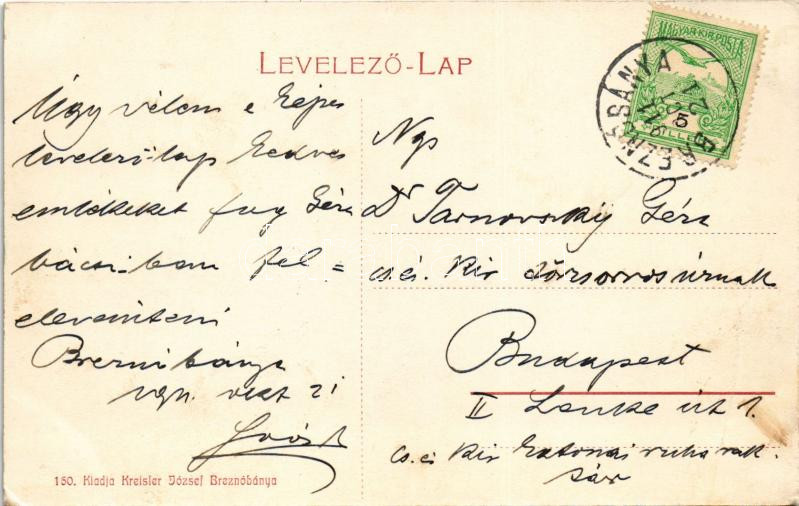 LEVELEZŐ-LAP
MAGYAR KIR. POSTA
BREZNÓBÁNYA
Úgy vélem e képes
levelező-lap kedves
emlékeket fog Géza
bácsiban fel=
eleveníteni
Breznóbánya
Ngs
Dr Tarnovszky Géza
cs. és. Kir törzsorvos úrnak
Budapest
II Lenke út 1.
cs. és Kir katonai ruha rak-
tár
150. Kiadja Kreisler József Breznóbánya